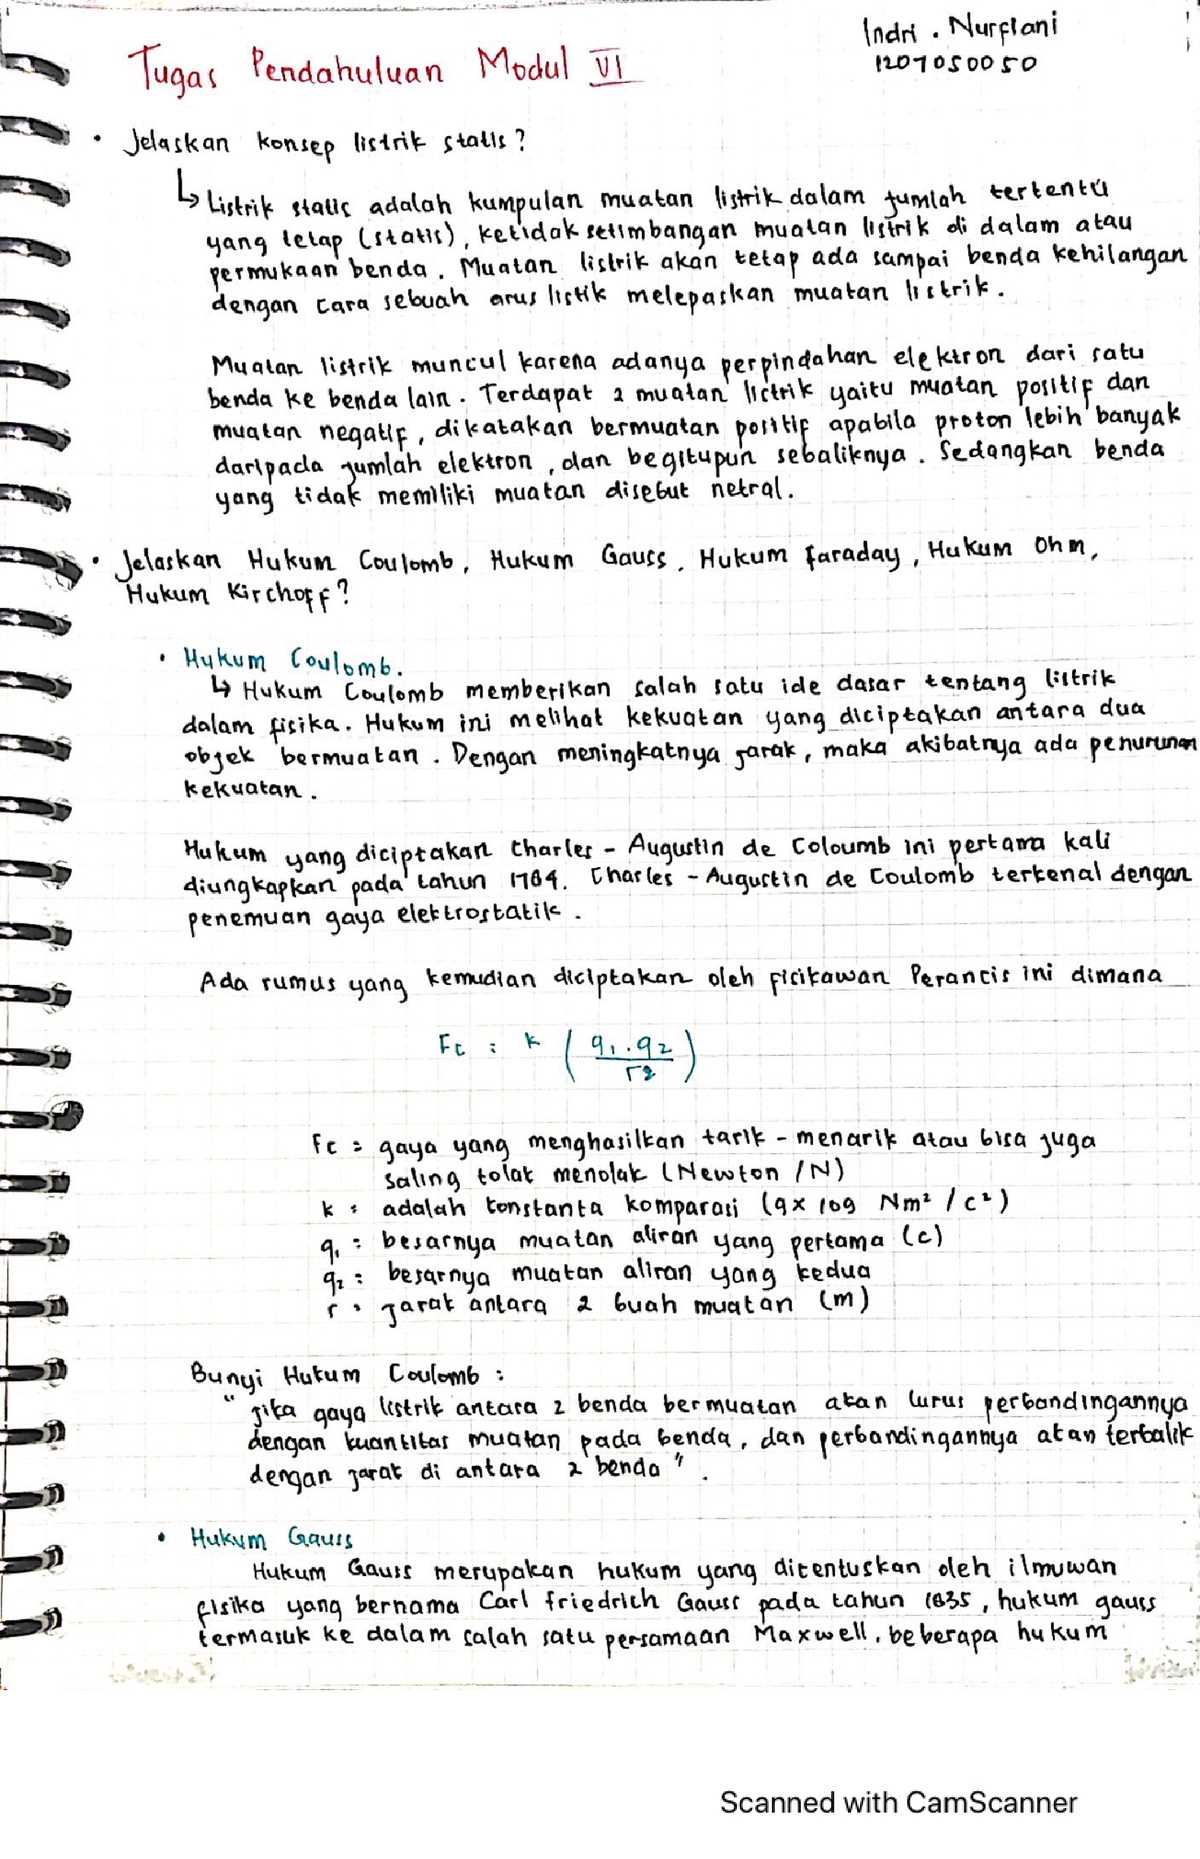 Indri . Nurfiani
1207050050
Tugas Pendahuluan Modul VI
• Jelaskan konsep listrik statis?
↳ Listrik statis adalah kumpulan muatan listrik dalam jumlah tertentu
yang tetap (statis), ketidak seimbangan muatan listrik di dalam atau
permukaan benda. Muatan listrik akan tetap ada sampai benda kehilangan
dengan cara sebuah arus listik melepaskan muatan listrik.
Muatan listrik muncul karena adanya perpindahan elektron dari satu
benda ke benda lain. Terdapat 2 muatan listrik yaitu muatan positif dan
muatan negatif, dikatakan bermuatan positif apabila proton lebih banyak
daripada jumlah elektron, dan begitupun sebaliknya. Sedangkan benda
yang tidak memiliki muatan disebut netral.
• Jelaskan Hukum Coulomb, Hukum Gauss, Hukum faraday, Hukum Ohm,
Hukum Kirchoff?
• Hukum Coulomb.
↳ Hukum Coulomb memberikan salah satu ide dasar tentang listrik
dalam fisika. Hukum ini melihat kekuatan yang diciptakan antara dua
objek bermuatan. Dengan meningkatnya jarak, maka akibatnya ada penurunan
kekuatan.
Hukum yang diciptakan Charles - Augustin de Coloumb ini pertama kali
diungkapkan pada tahun 1784. Charles - Augustin de Coulomb terkenal dengan
penemuan gaya elektrostatik.
Ada rumus yang kemudian diciptakan oleh fisikawan Perancis ini dimana
Fc : k ( q1 . q2 / r2 )
Fc = gaya yang menghasilkan tarik - menarik atau bisa juga
saling tolak menolak (Newton /N)
k : adalah konstanta komparasi (9x 109 Nm² / c²)
q1 : besarnya muatan aliran yang pertama (c)
q2 : besarnya muatan aliran yang kedua
r : jarak antara 2 buah muatan (m)
Bunyi Hukum Coulomb :
" jika gaya listrik antara 2 benda bermuatan akan lurus perbandingannya
dengan kuantitas muatan pada benda, dan perbandingannya akan terbalik
dengan jarak di antara 2 benda ".
• Hukum Gauss
Hukum Gauss merupakan hukum yang ditentuskan oleh ilmuwan
fisika yang bernama Carl friedrich Gauss pada tahun 1835, hukum gauss
termasuk ke dalam salah satu persamaan Maxwell. beberapa hukum
Scanned with CamScanner